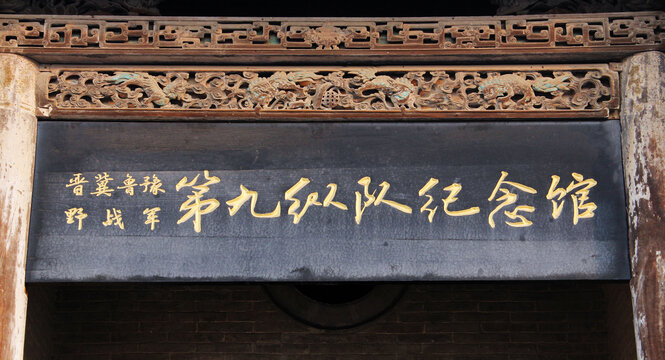 晋冀鲁豫
野战军
第九纵队纪念馆